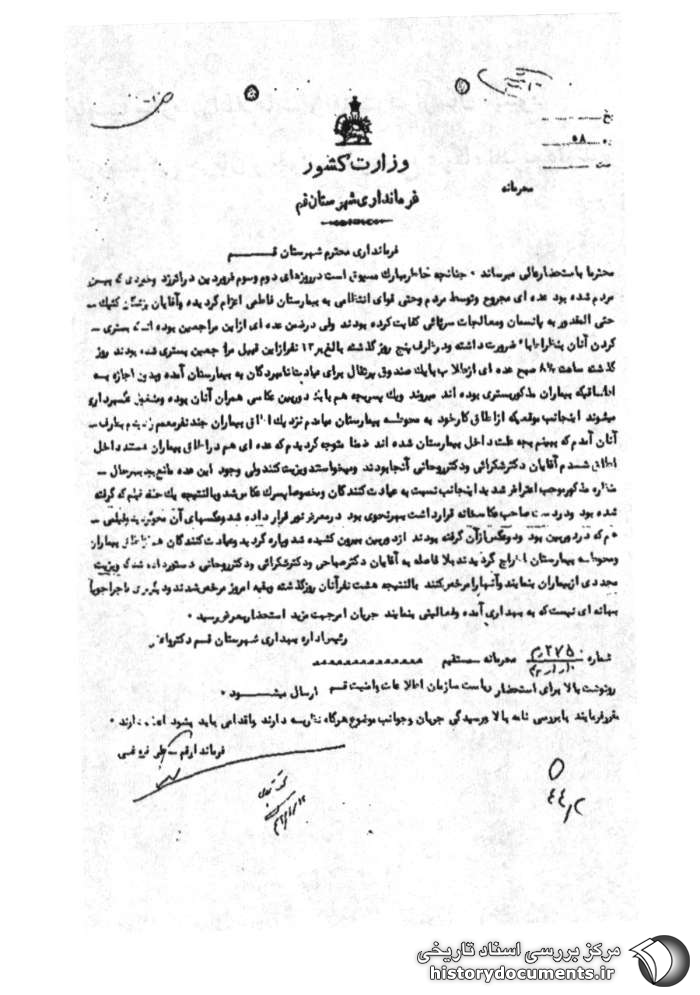 خ
۵۸
محرمانه
وزارت کشور
فرمانداری شهرستان قم
فرمانداری محترم شهرستان قــــم
محترما باستحضارعالی میرساند ۰ چنانچه خاطرمبارك مسبوق است درروزهای دوم وسوم فروردین دراثرزد وخوردی که بین
مردم شده بود عده ای مجروح وتوسط مردم وحتی قوای انتظامی به بیمارستان فاطمی اعزام گردیده وآقایان پزشکان کشیک
حتی المقدور به پانسمان ومعالجات سرپائی کفایت کرده بودند ولی درضمن عده ای ازاین مراجعین بوده اند که بستری
کردن آنان بنظراطباء ضرورت داشته ودرظرف پنج روز گذشته بالغ بر ۱۳ نفرازاین قبیل مراجعین بستری شده بودند روز
گذشته ساعت ۸/۵ صبح عده ای ازطلاب بایك صندوق پرتقال برای عیادت نامبردگان به بیمارستان آمده وبدون اجازه به
اطاقیکه بیماران مذکوربستری بوده اند میروند ویك پسربچه هم با یك دوربین عکاسی همراه آنان بوده ومشغول عکسبرداری
میشوند اینجانب موقعیکه ازاطاق کارخود به محوطه بیمارستان میامدم نزدیك اطاق بیماران چند نفرمعمم دیدم بطرف
آنان آمدم که ببینم بچه علت داخل بیمارستان شده اند ضمنا متوجه گردیدم که عده ای هم دراطاق بیماران هستند داخل
اطاق شدم آقایان دکترشکرائی ودکترروحانی آنجا بودند ومیخواستند ویزیت کنند ولی وجود این عده مانع بود بهرحال
مذکورموجب اعتراض شدید اینجانب نسبت به عیادت کنندگان ومخصوصا پسرك عکاس شد وبالنتیجه یك حلقه فیلم که گرفته
شده بود ودردست صاحب عکاسخانه قرارداشت بهرنحوی بود درمعرض نور قرار داده شد وعکسهای آن محو گردید وفیلمی
هم که دردوربین بود ودوعکس ازآن گرفته بودند ازدوربین بیرون کشیده شد وپاره گردید وعیادت کنندگان هم ازاطاق بیماران
ومحوطه بیمارستان اخراج گردیدند بلافاصله به آقایان دکترصباحی ودکترشکرائی ودکترروحانی دستورداده شد که ویزیت
مجددی ازبیماران بنمایند وآنهارا مرخص کنند بالنتیجه هشت نفرآنان روزگذشته وبقیه امروز مرخص شدند و
بهانه ای نیست که به بهداری آمده وفعالیتی بنمایند جریان امرجهت مزید استحضاربعرض رسید ۰
رئیس اداره بهداری شهرستان قم دکتر
شماره ۲۷۵۰ محرمانه مستقیم
رونوشت بالا برای استحضار ریاست سازمان اطلاعات وامنیت قم ارسال میشـــود ۰
مقررفرمایند بابررسی نامه بالا ورسیدگی جریان وجوانب موضوع هرگاه نظریه دارند واقدامی باید بشود اعلام دارند ۰
فرماندار قم
۴۴٫۲
مرکز بررسی اسناد تاریخی
historydocuments.ir